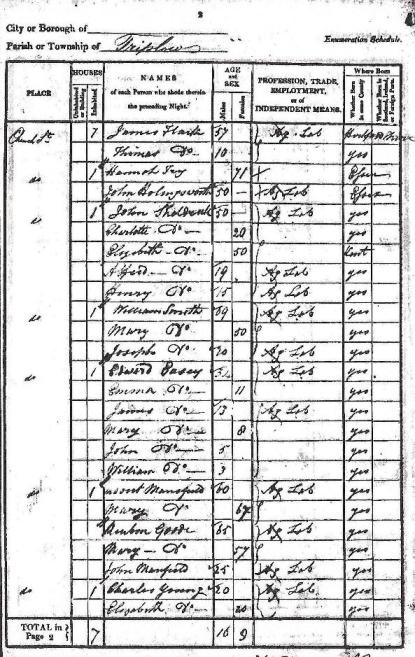 2
City or Borough of
Parish or Township of Triplow
Enumeration Schedule.
PLACE
HOUSES
Uninhabited or Building
Inhabited
NAMES
of each Person who abode therein the preceding Night.
AGE and SEX
Males
Females
PROFESSION, TRADE, EMPLOYMENT, or of INDEPENDENT MEANS.
Where Born
Whether Born in same County
Whether Born in Scotland, Ireland, or Foreign Parts
1 James 57 Ag Lab
Do 10 yes
do 1 Hannah 71 Essex
John 50 Ag Lab Essex
do 1 John 50 Ag Lab yes
Charlotte Do 20 yes
Elizabeth Do 50 Kent
Alfred Do 19 Ag Lab yes
Henry Do 15 Ag Lab yes
do 1 William Smith 49 Ag Lab yes
Mary Do 50 yes
Joseph Do 20 Ag Lab yes
do 1 Edward Ag Lab yes
Emma Do 11 yes
James Do 13 Ag Lab yes
Mary Do 8 yes
John Do 5 yes
William Do 3 yes
do 1 Mansfield 60 Ag Lab yes
Mary Do yes
Reuben Goode 65 Ag Lab yes
Mary Do 57 yes
John Manfield 25 Ag Lab yes
do 1 Charles 20 Ag Lab yes
Elizabeth Do 20 yes
TOTAL in Page 2 7 16 9